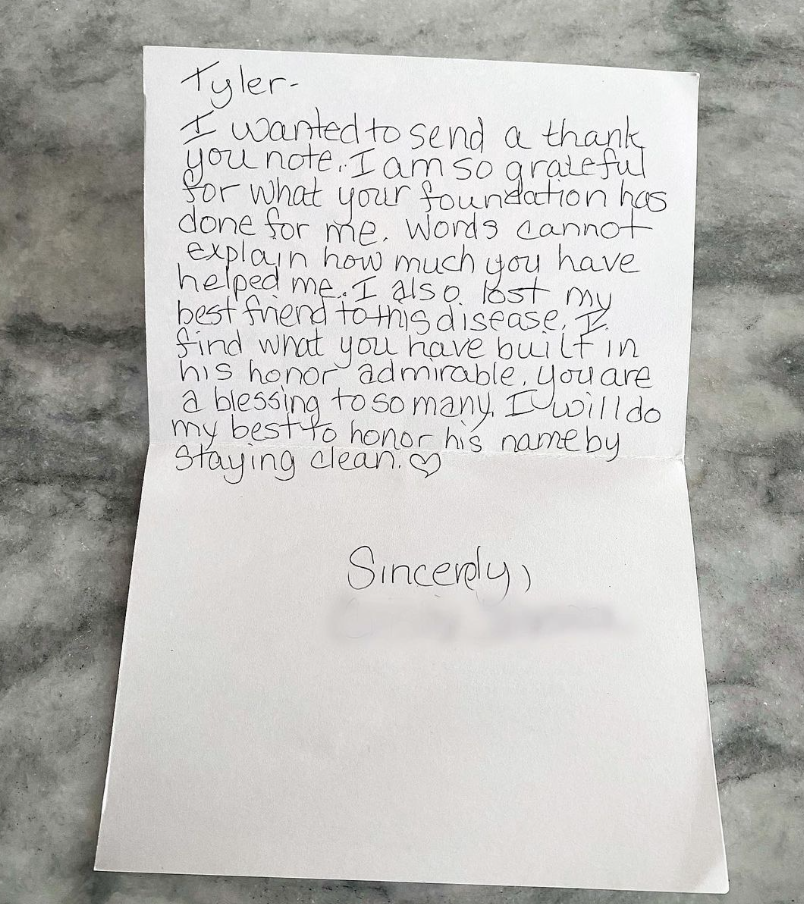 Tyler-
I wanted to send a thank
you note. I am so grateful
for what your foundation has
done for me. Words cannot
explain how much you have
helped me. I also lost my
best friend to this disease. I
find what you have built in
his honor admirable. You are
a blessing to so many. I will do
my best to honor his name by
staying clean. ♡
Sincerely,